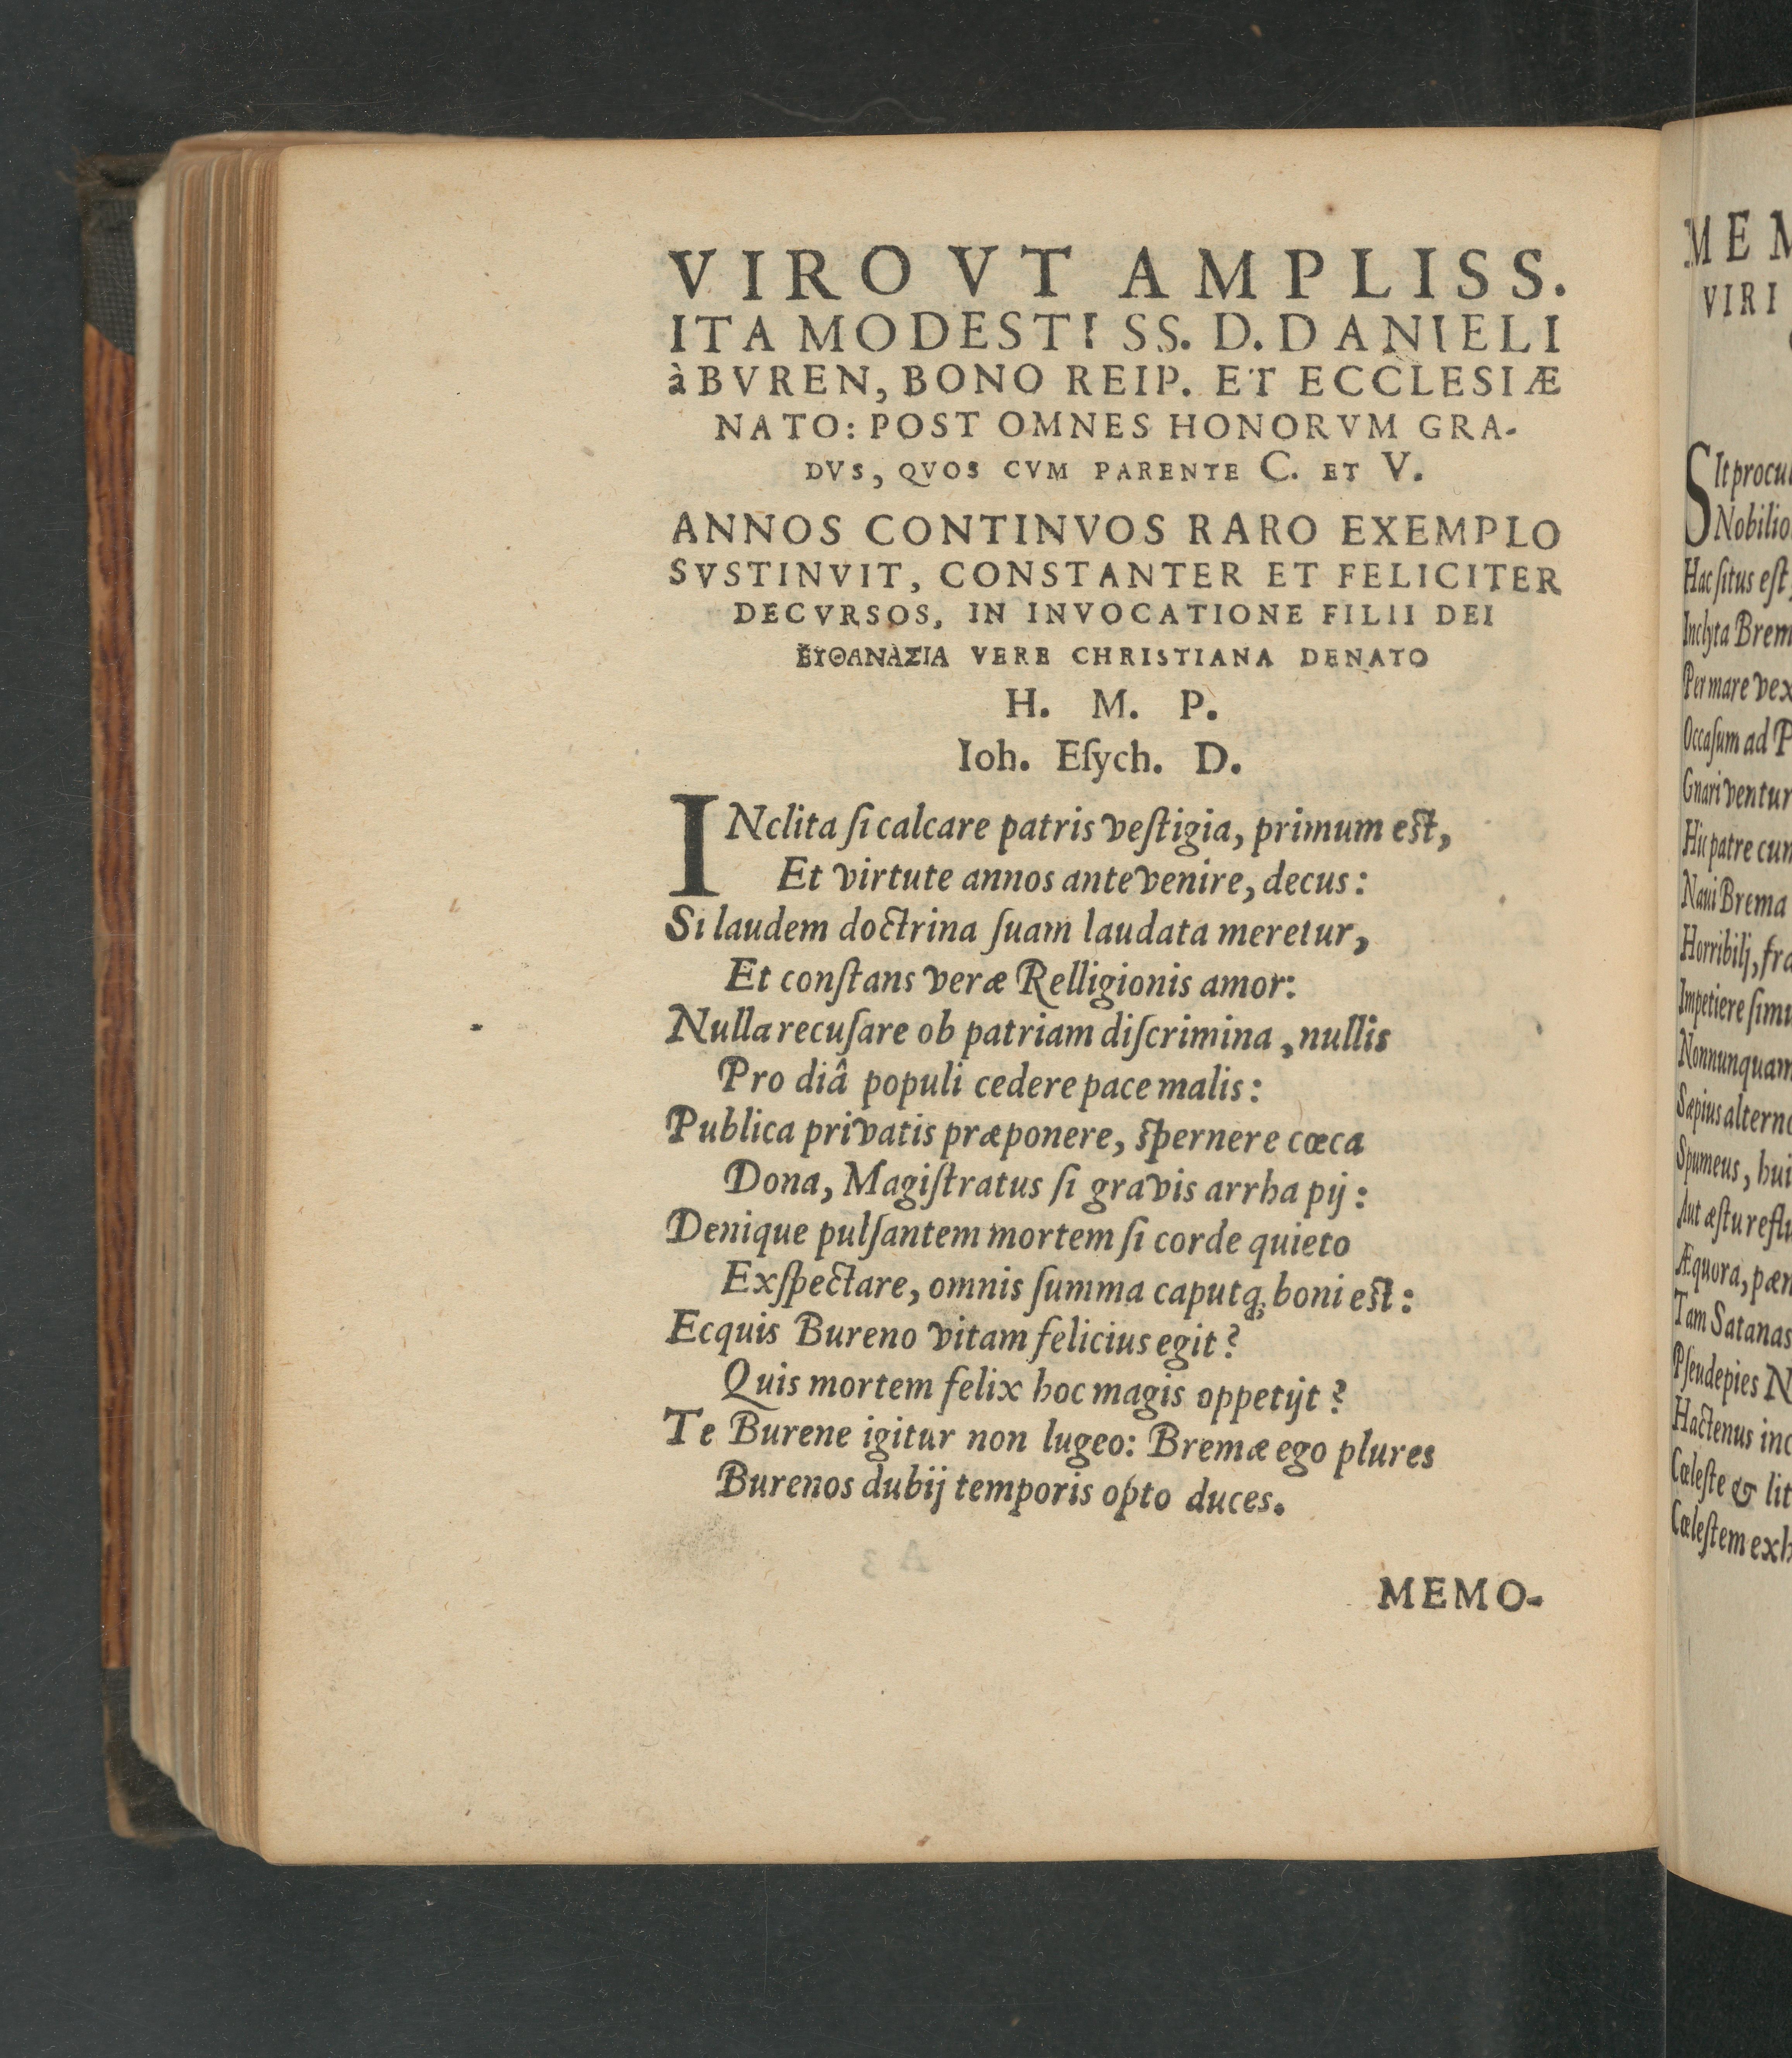 VIRO VT AMPLISS.
ITA MODESTISS. D. DANIELI
à BVREN, BONO REIP. ET ECCLESIÆ
NATO: POST OMNES HONORVM GRA-
DVS, QVOS CVM PARENTE C. ET V.
ANNOS CONTINVOS RARO EXEMPLO
SVSTINVIT, CONSTANTER ET FELICITER
DECVRSOS, IN INVOCATIONE FILII DEI
ἘΥΘΑΝΆΣΙΑ VERE CHRISTIANA DENATO
H. M. P.
Ioh. Eſych. D.
INclita ſi calcare patris veſtigia, primum eſt,
Et virtute annos antevenire, decus:
Si laudem doctrina ſuam laudata meretur,
Et conſtans veræ Relligionis amor:
Nulla recuſare ob patriam diſcrimina, nullis
Pro diâ populi cedere pace malis:
Publica privatis præponere, ſpernere cœca
Dona, Magiſtratus ſi gravis arrha pij:
Denique pulſantem mortem ſi corde quieto
Exſpectare, omnis ſumma caputq; boni eſt:
Ecquis Bureno vitam felicius egit?
Quis mortem felix hoc magis oppetijt?
Te Burene igitur non lugeo: Bremæ ego plures
Burenos dubij temporis opto duces.
MEMO-
MEM
VIRI
SIt procul
Nobilio
Hac ſitus eſt
Inclyta Brem
Per mare vex
Occaſum ad P
Gnari ventur
Hic patre cum
Naui Brema
Horribilj, fra
Impetiere ſimu
Nonnunquam
Sæpius alterno
Spumeus, hui
Aut æſtu reflu
Æquora, pæn
Tam Satanas
Pſeudepies N
Hactenus inc
Cœleſte & lit
Cœleſtem exh